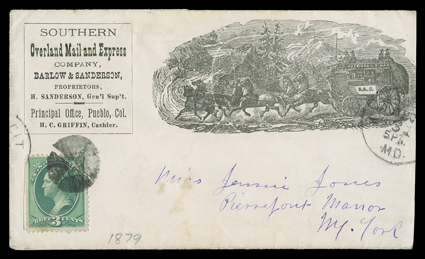 SOUTHERN
Overland Mail and Express
COMPANY,
BARLOW & SANDERSON,
PROPRIETORS,
H. SANDERSON, Gen'l Sup't.
Principal Office, Pueblo, Col.
H. C. GRIFFIN, Cashier.
MO.
THREE 3 CENTS
Miss Jennie Jones
Pierrepont Manor
N. York
1879